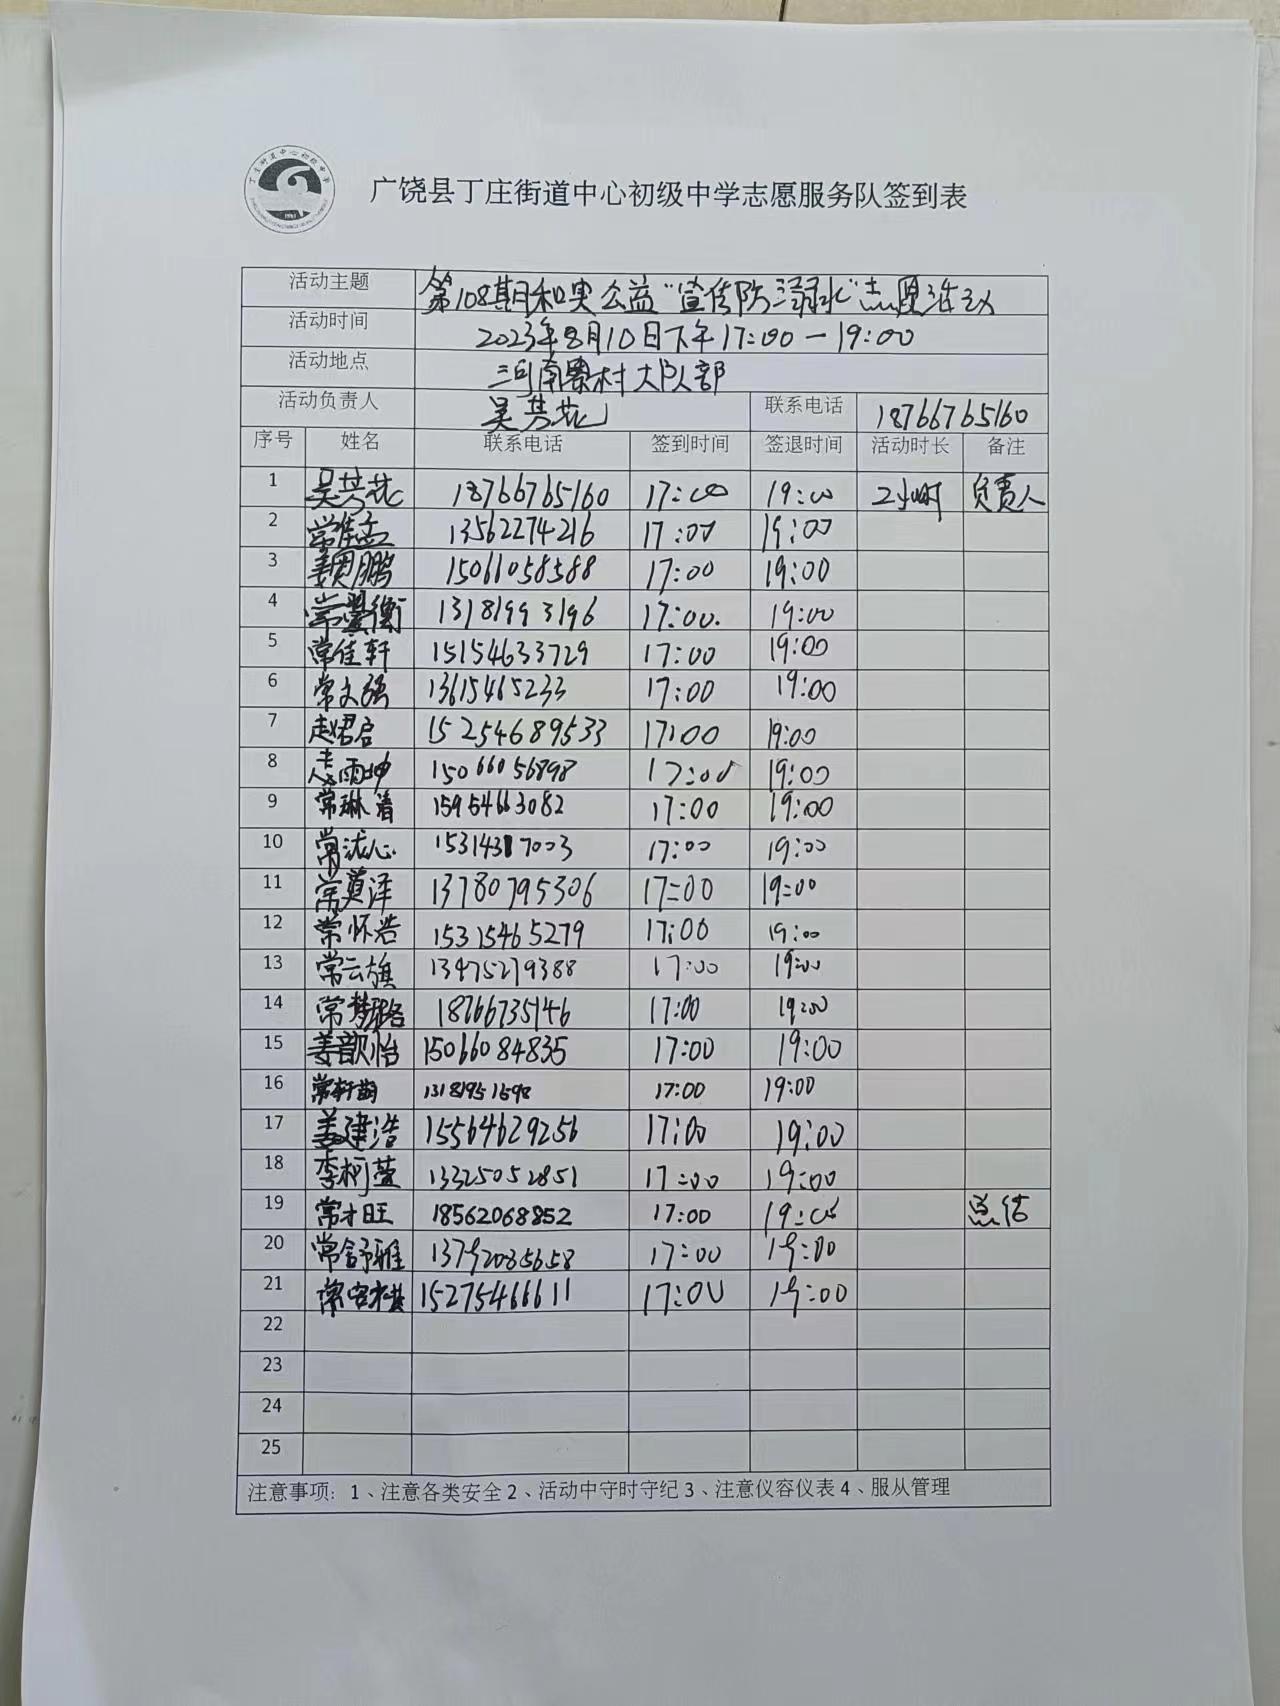 丁庄街道中心初级中学
1961
广饶县丁庄街道中心初级中学志愿服务队签到表
活动主题 第108期和实公益“宣传防溺水”志愿活动
活动时间 2023年8月10日下午17:00—19:00
活动地点 三河南寨村大队部
活动负责人 吴芳花 联系电话 18766765160
序号 姓名 联系电话 签到时间 签退时间 活动时长 备注
1 吴芳花 18766765160 17:00 19:00 2小时 负责人
2 常佳孟 13562274216 17:00 19:00
3 鹏 15066058588 17:00 19:00
4 常 衡 13181993196 17:00. 19:00
5 常佳轩 15154633729 17:00 19:00
6 常文强 13615465233 17:00 19:00
7 赵君启 15254689533 17:00 19:00
8 雨坤 15066056898 17:00 19:00
9 常琳清 15954663082 17:00 19:00
10 常 心 15314317003 17:00 19:00
11 常奠泽 13780795306 17:00 19:00
12 常怀浩 15315465279 17:00 19:00
13 常云旗 13475279388 17:00 19:00
14 常梦璐 18766735146 17:00 19:00
15 姜歆怡 15066084835 17:00 19:00
16 常轩 13181951598 17:00 19:00
17 姜建浩 15564629256 17:00 19:00
18 李柯萱 13325052851 17:00 19:00
19 常才旺 18562068852 17:00 19:00 总结
20 常舒雅 13792035658 17:00 19:00
21 常 15275466611 17:00 19:00
22
23
24
25
注意事项：1、注意各类安全 2、活动中守时守纪 3、注意仪容仪表 4、服从管理